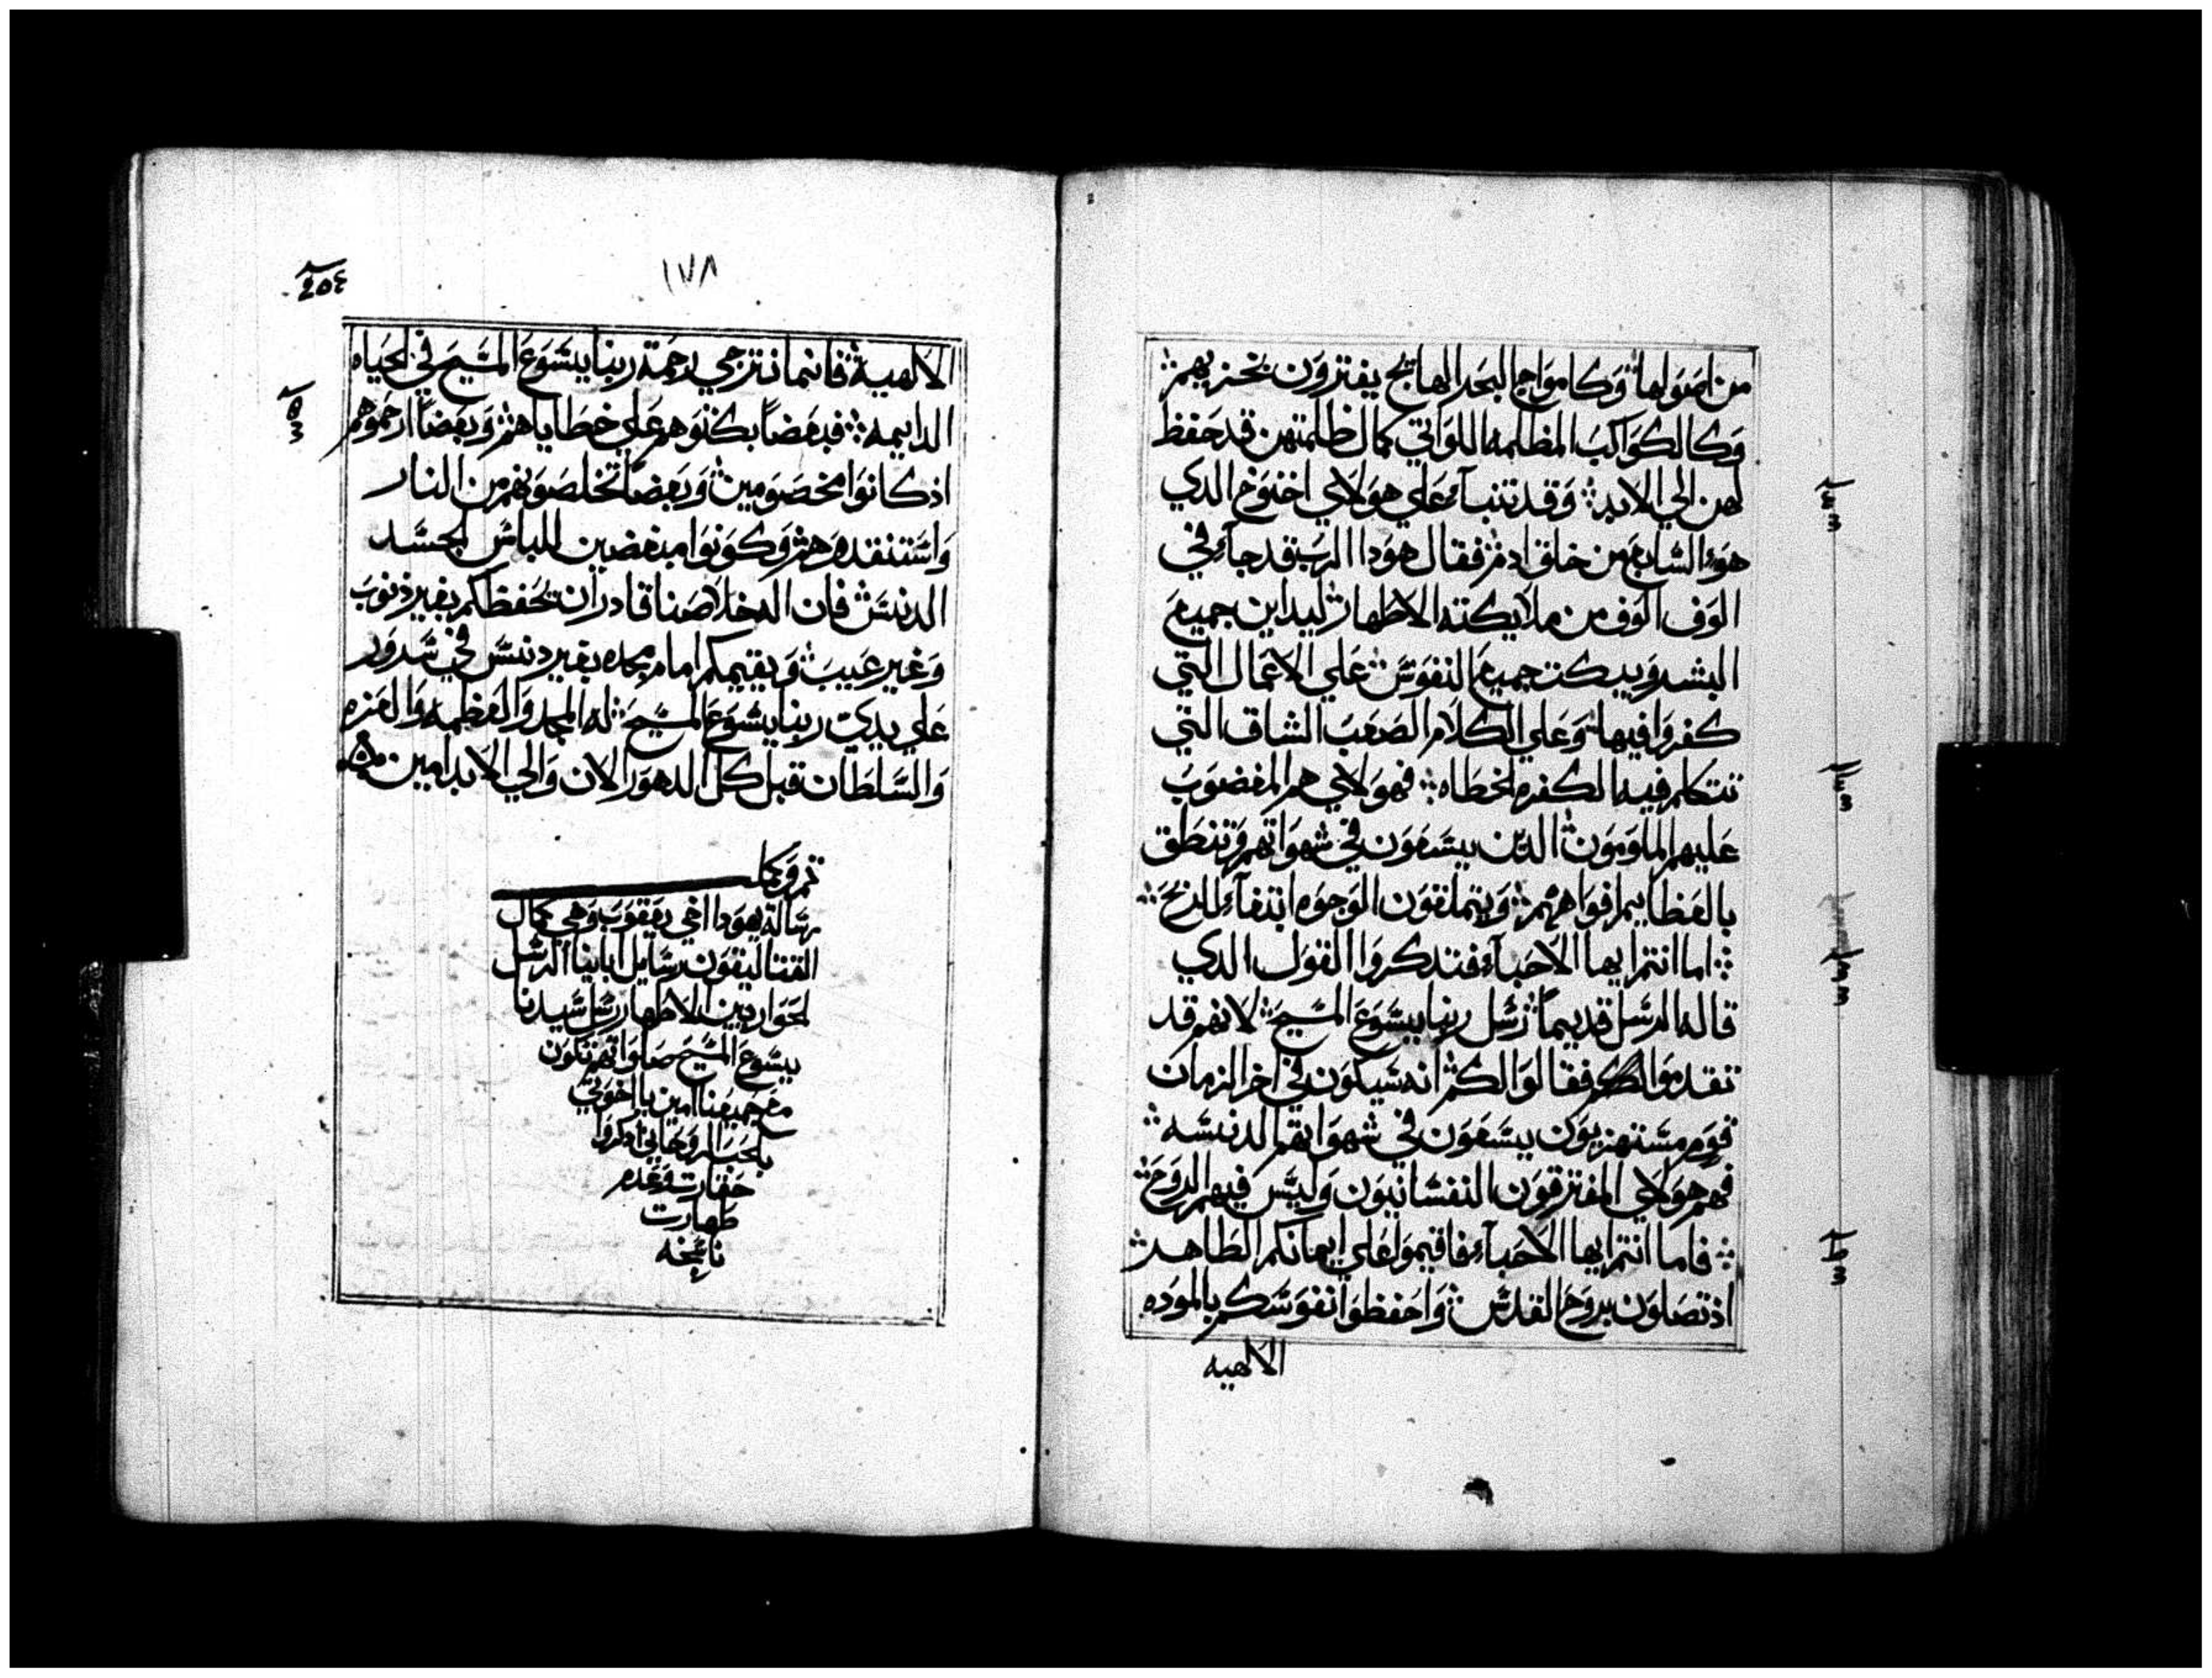 من اصولها وكامواج البحر الهايج يفترون بخزيهم
وكالكواكب المظلمه اللواتي كمال ظلمتهن قد حفظ
لهن الي الابد وقد تنبآء علي هولاي اخنوخ الدي
هوء السابع من خلق ادم فقال هودا الرب قد جآء في
الوف الوف من ملايكته الاطهار ليداين جميع
البشر ويبكت جميع النفوس علي الاعمال التي
كفروا فيها وعلي الكلام الصعب الشاق التي
تتكلم فيه الكفره الخطاه فهولاي هم المغضوب
عليهم الملومون الدين يسعون في شهواتهم وتنطق
بالعظايم افواههم ويتملقون الوجوه ابتغآء الربح
اما انتم ايها الاحبآء فتدكروا القول الدي
قاله الرسل قديماً رسل ربنا يسوع المسيح لانهم قد
تقدموا فقالوا لكم انه سيكون في اخر الزمان
قوم مستهزيون يسعون في شهواتهم الدنسه
فهم هولاي المفترقون النفسانيون وليس فيهم الروح
فاما انتم ايها الاحبآء فاقيموا علي ايمانكم الطاهر
اذ تصلون بروح القدس واحفظوا نفوسكم بالموده
الالهيه
١٧٨
الالهية فانما نترجي رحمة ربنا يسوع المسيح في الحياه
الدايمه فبعضاً بكتوهم علي خطاياهم وبعضاً ارحموهم
اذ كانوا مخصومين وبعضاً تخلصونهم من النار
واستنقدوهم وكونوا مبغضين للباس الجسد
الدنس فان اله خلاصنا قادر ان يحفظكم بغير ذنوب
وغير عيب ويقيمكم امام مجده بغير دنس في سرور
علي يدي ربنا يسوع المسيح له المجد والعظمه والعزه
والسلطان قبل كل الدهور الان والي الابد امين
تم وكمل
رسالة يهودا اخي يعقوب وهي كمال
القتاليقون رسايل ابآينا الرسل
الحواريين الاطهار رسل سيدنا
يسوع المسيح صلواتهم تكون
مع جميعنا امين يا اخوتي
بالحب الروحاني ادكروا
حقارت وعدم
طهارت
ناسخه